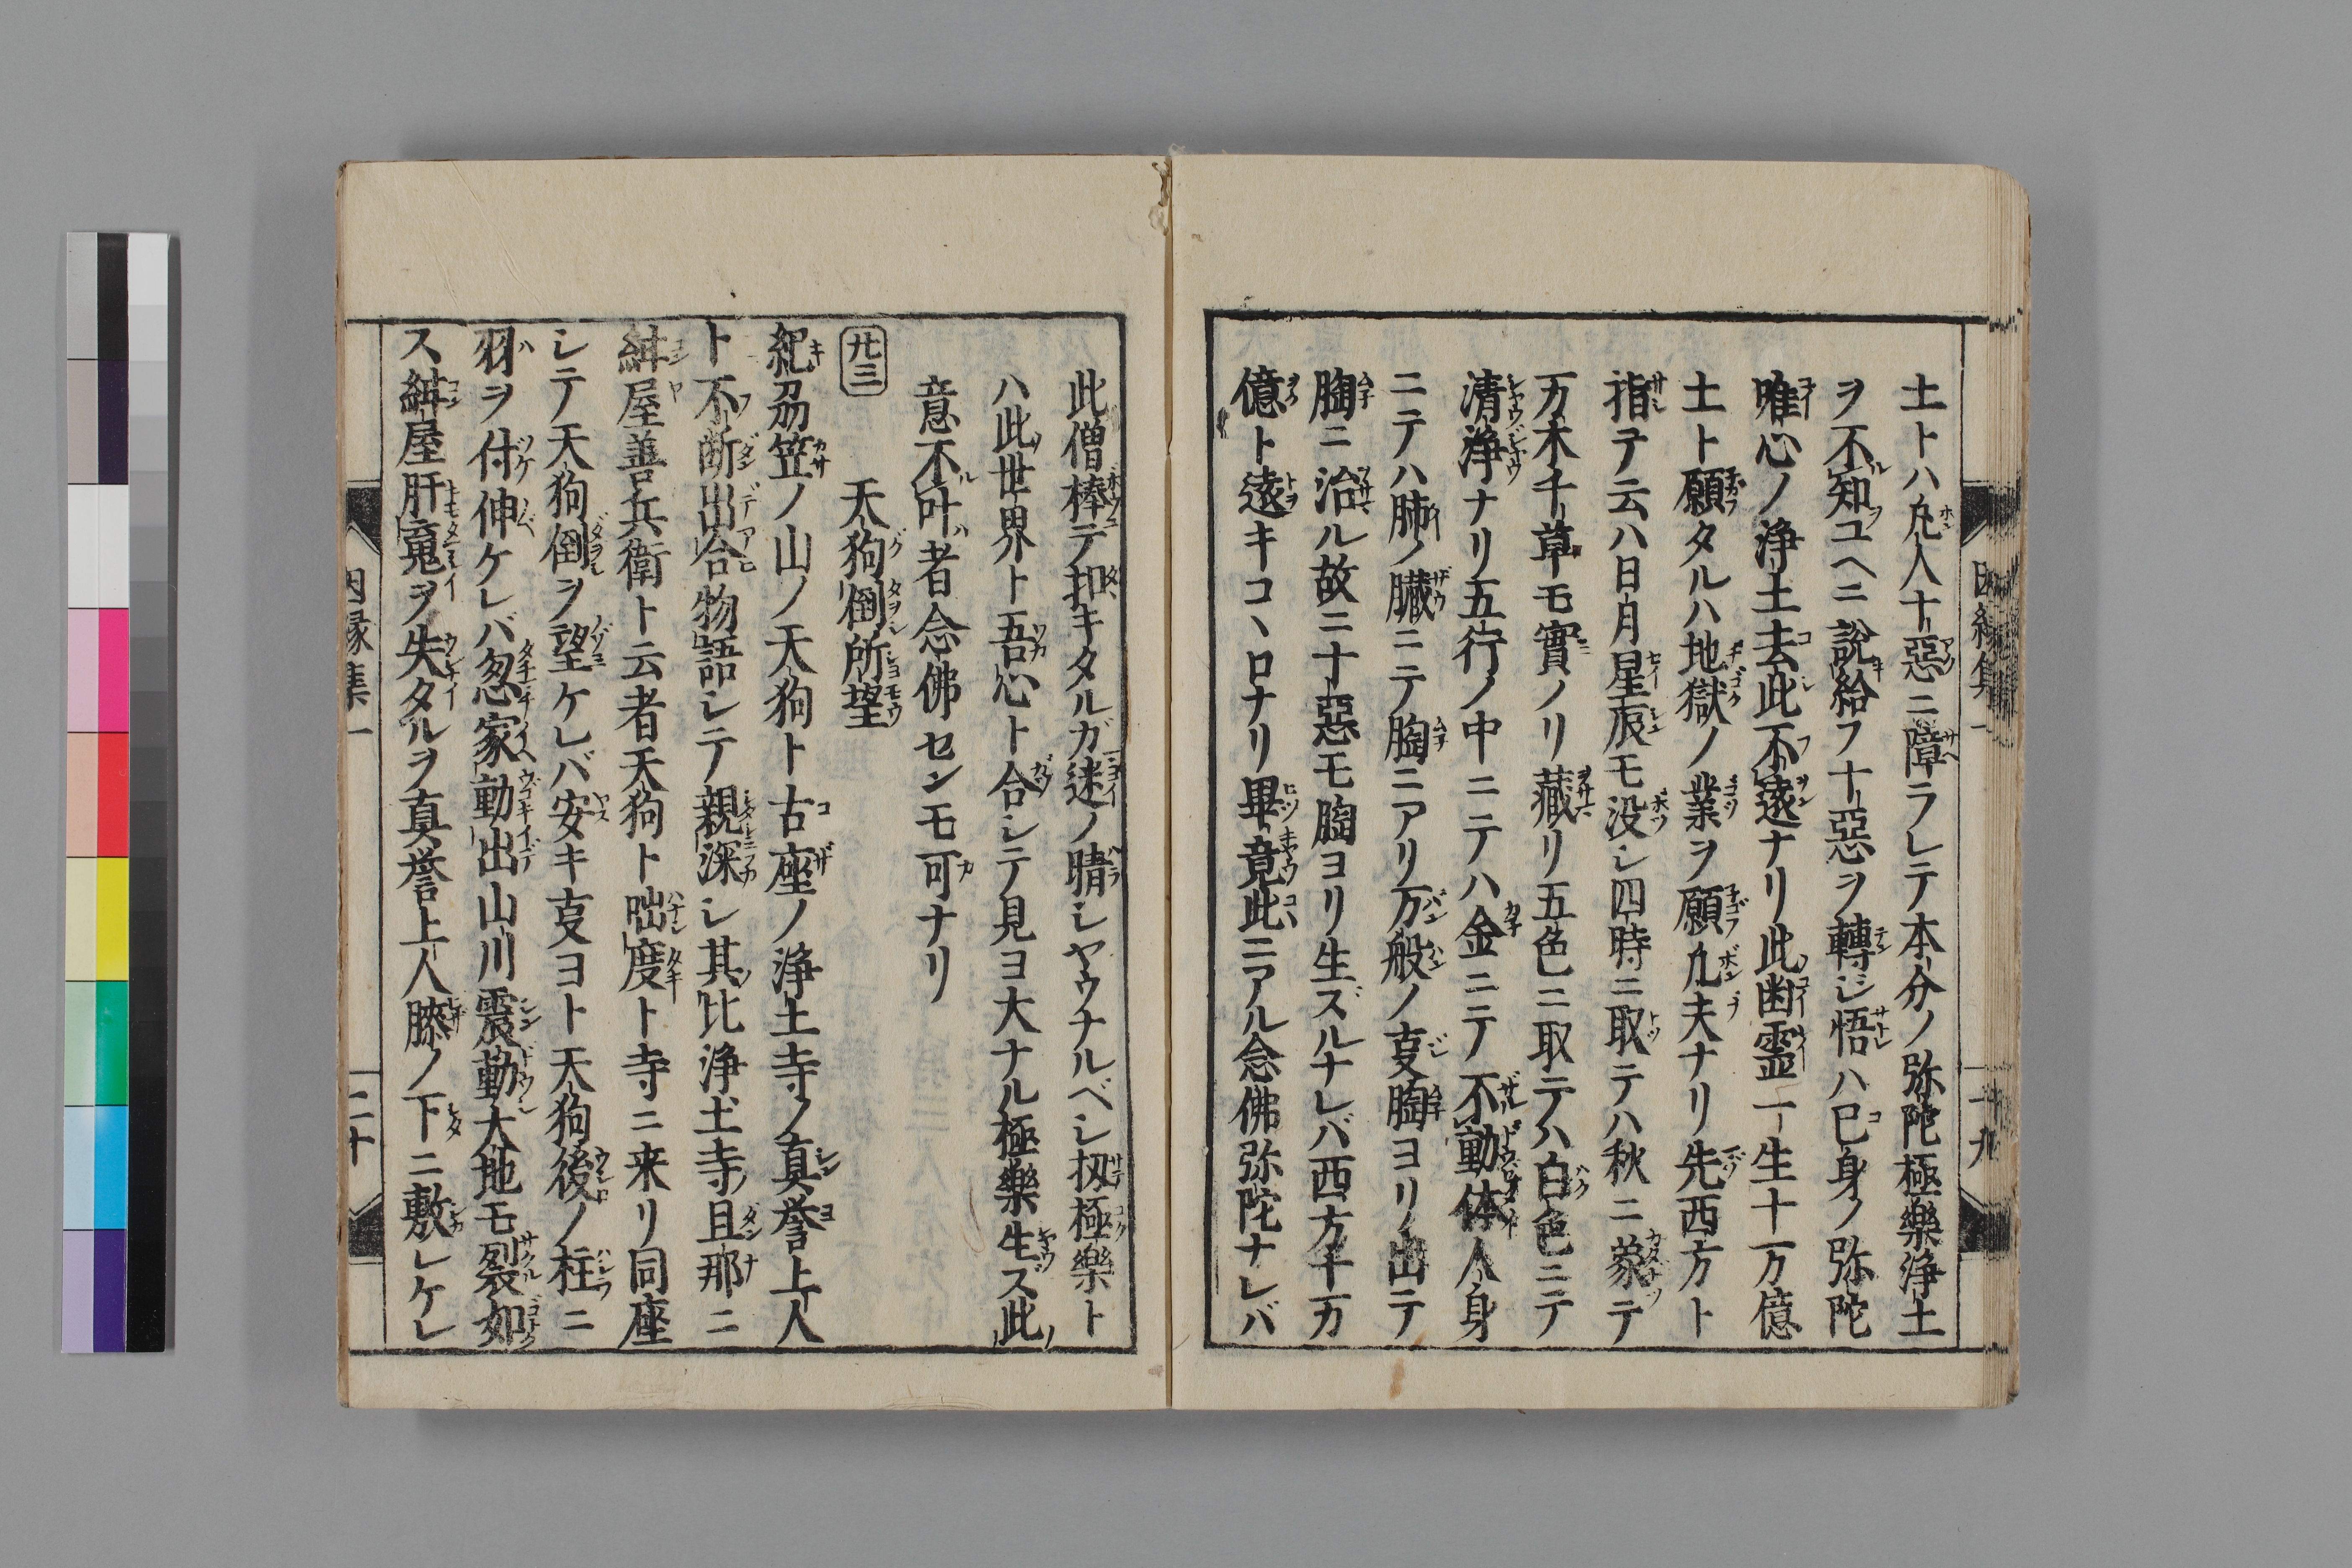 土トハ凡人十惡ニ障ラレテ本分ノ弥陀極樂浄土
ヲ不知ユヘニ說給フ十惡ヲ轉ジ悟ハ已身ノ弥陀
唯心ノ浄土去此不遠ナリ此齿霊一生十万億
土ト願タルハ地獄ノ業ヲ願凡夫ナリ先西方ト
指テ云ハ日月星辰モ没シ四時ニ取テハ秋ニ蒙テ
万木千草モ實ノリ藏リ五色ニ取テハ白色ニテ
清浄ナリ五行ノ中ニテハ金ニテ不動体人身
ニテハ肺ノ臓ニテ胸ニアリ万般ノ叓胸ヨリ出テ
胸ニ治ル故ニ十惡モ胸ヨリ生ズルナレバ西方十万
億ト遠キコヽロナリ畢竟此ニアル念佛弥陀ナレバ
因縁集一
十九
此僧棒テ扣キタルガ迷ノ晴シヤウナルベシ扨極樂ト
ハ此世界ト吾心ト合シテ見ヨ大ナル極樂生ズ此
意不叶者念佛センモ可ナリ
廿三
天狗倒所望
紀刕笠ノ山ノ天狗ト古座ノ浄土寺ノ真誉上人
ト不断出合物語シテ親深シ其比浄土寺且那ニ
紺屋善兵衛ト云者天狗ト咄度ト寺ニ来リ同座
シテ天狗倒ヲ望ケレバ安キ叓ヨト天狗後ノ柱ニ
羽ヲ付伸ケレバ忽家動出山川震動大地モ裂如
ス紺屋肝䰟ヲ失タルヲ真誉上人膝ノ下ニ敷レケレ
因縁集一
二十